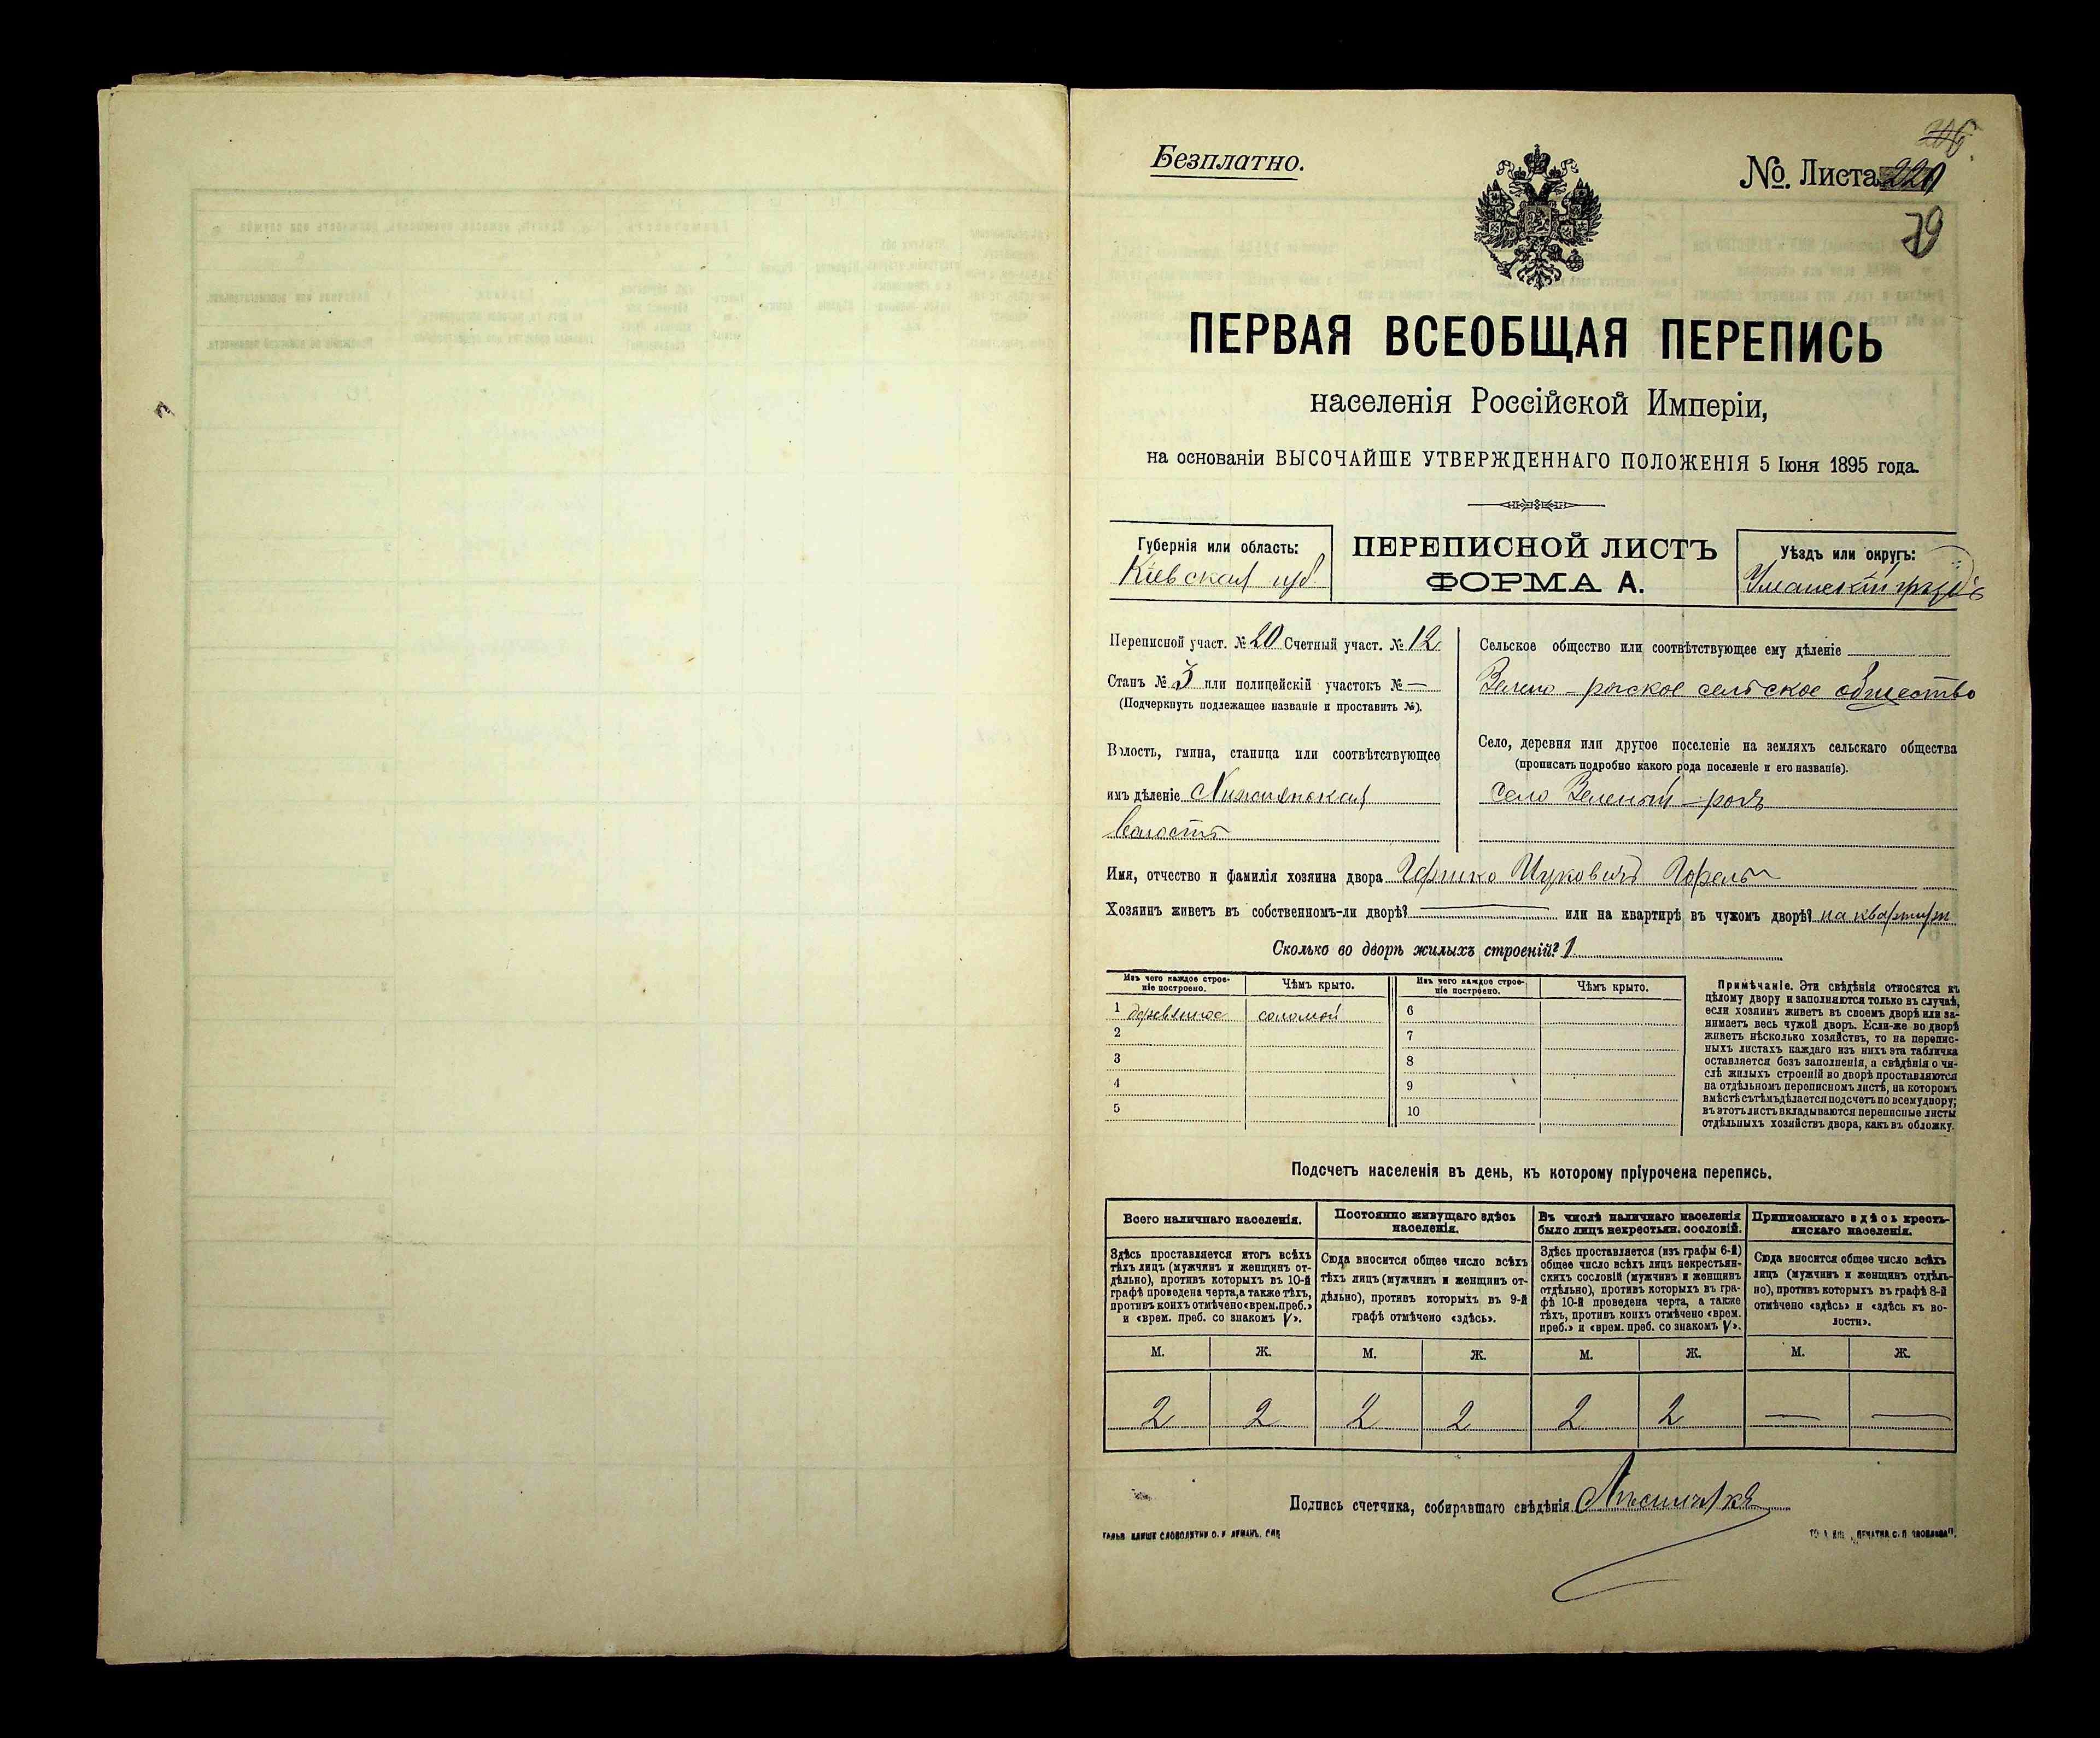 Безплатно.
№. Листа 220
79
ПЕРВАЯ ВСЕОБЩАЯ ПЕРЕПИСЬ
населенія Россійской Имперіи,
на основаніи ВЫСОЧАЙШЕ УТВЕРЖДЕННАГО ПОЛОЖЕНІЯ 5 Іюня 1895 года.
Губернія или область:
Кіевская губ.
ПЕРЕПИСНОЙ ЛИСТЪ
ФОРМА А.
Уѣздъ или округъ:
Уманскій уѣздъ
Переписной участ. № 20 Счетный участ. № 12
Станъ № 3 или полицейскій участокъ № —
(Подчеркнуть подлежащее названіе и проставить №).
Волость, гмина, станица или соотвѣтствующее
имъ дѣленіе
волость
Сельское общество или соотвѣтствующее ему дѣленіе
Зелено-рогское сельское общество
Село, деревня или другое поселеніе на земляхъ сельскаго общества
(прописать подробно какого рода поселеніе и его названіе).
Село Зеленый-рогъ
Имя, отчество и фамилія хозяина двора
Хозяинъ живетъ въ собственномъ-ли дворѣ? — или на квартирѣ въ чужомъ дворѣ? на квартирѣ
Сколько во дворѣ жилыхъ строеній? 1
Изъ чего каждое строе-
ніе построено.
Чѣмъ крыто.
Изъ чего каждое строе-
ніе построено.
Чѣмъ крыто.
1 деревянное соломой 6
2 7
3 8
4 9
5 10
Примѣчаніе. Эти свѣдѣнія относятся къ
цѣлому двору и заполняются только въ случаѣ,
если хозяинъ живетъ въ своемъ дворѣ или за-
нимаетъ весь чужой дворъ. Если-же во дворѣ
живетъ нѣсколько хозяйствъ, то на перепис-
ныхъ листахъ каждаго изъ нихъ эта табличка
оставляется безъ заполненія, а свѣдѣнія о чи-
слѣ жилыхъ строеній во дворѣ проставляются
на отдѣльномъ переписномъ листѣ, на которомъ
вмѣстѣ съ тѣмъ дѣлается подсчетъ по всему двору;
въ этотъ листъ вкладываются переписные листы
отдѣльныхъ хозяйствъ двора, какъ въ обложку.
Подсчетъ населенія въ день, къ которому пріурочена перепись.
Всего наличнаго населенія.
Здѣсь проставляется итогъ всѣхъ
тѣхъ лицъ (мужчинъ и женщинъ от-
дѣльно), противъ которыхъ въ 10-й
графѣ проведена черта, а также тѣхъ,
противъ коихъ отмѣчено «врем. преб.»
и «врем. преб. со знакомъ V».
Постоянно живущаго здѣсь
населенія.
Сюда вносится общее число всѣхъ
тѣхъ лицъ (мужчинъ и женщинъ от-
дѣльно), противъ которыхъ въ 9-й
графѣ отмѣчено «здѣсь».
Въ числѣ наличнаго населенія
было лицъ некрестьян. сословій.
Здѣсь проставляется (изъ графы 6-й)
общее число всѣхъ лицъ некрестьян-
скихъ сословій (мужчинъ и женщинъ
отдѣльно), противъ которыхъ въ гра-
фѣ 10-й проведена черта, а также
тѣхъ, противъ коихъ отмѣчено «врем.
преб.» и «врем. преб. со знакомъ V».
Приписаннаго здѣсь кресть-
янскаго населенія.
Сюда вносится общее число всѣхъ
лицъ (мужчинъ и женщинъ отдѣль-
но), противъ которыхъ въ графѣ 8-й
отмѣчено «здѣсь» и «здѣсь къ во-
лости».
М. Ж. М. Ж. М. Ж. М. Ж.
2 2 2 2 2 2 — —
Подпись счетчика, собиравшаго свѣдѣнія